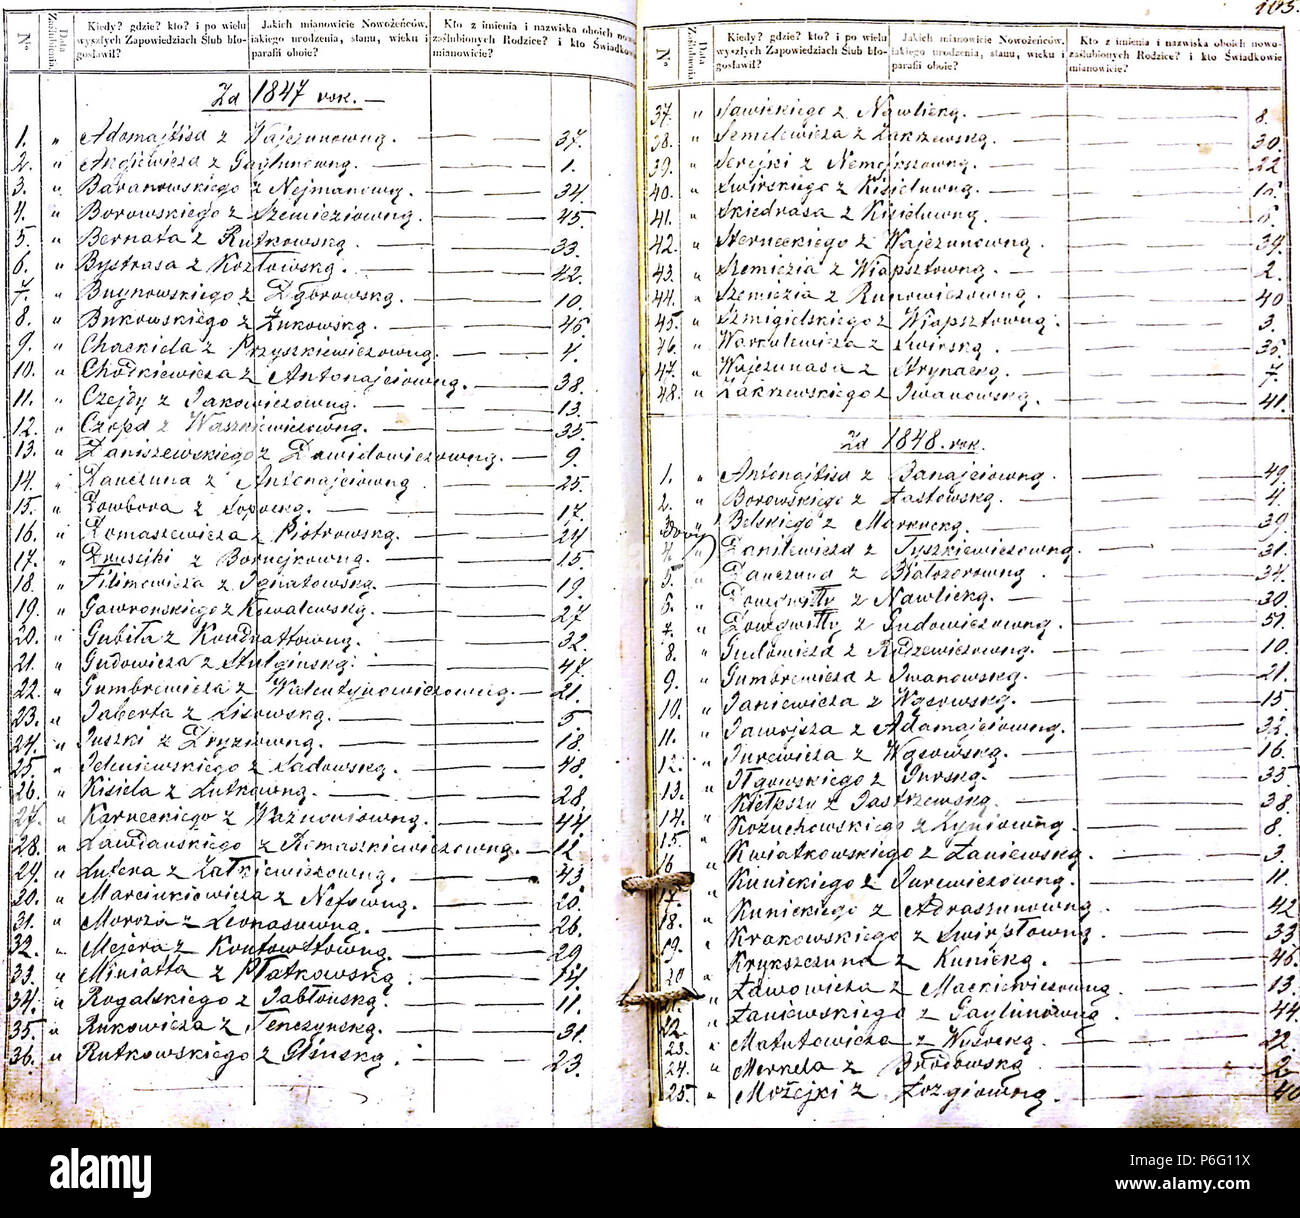 105.
Nº
Data Zaślubienia
Kiedy? gdzie? kto? i po wielu wyszłych Zapowiedziach Ślub błogosławił?
Jakich mianowicie Nowożeńców, jakiego urodzenia, stanu, wieku i parafii oboie?
Kto z imienia i nazwiska oboich nowozaślubionych Rodzice? i kto Świadkowie mianowicie?
Za 1847 rok.
1. „ Adamajtisa z Wajczunowną. 37.
2. „ Angiewicza z Gaylunowną. 1.
3. „ Baranowskiego z Nejmanowną 34.
4. „ Borowskiego z Szemieziowną. 45.
5. „ Bernata z Rutkowską 33.
6. „ Bystrasa z Kozłowską. 42.
7. „ Buynowskiego z Dąbrowską. 10.
8. „ Bukowskiego z Żukowską. 46
9. „ Chackiela z Przyszkiewiczowną. 4.
10. „ Chodkiewicza z Antonajciowną. 38.
11. „ Czejdy z Jakowiczowną. 13.
12. „ Czopa z Waszkiewiczowną. 35.
13. „ Daniszewskiego z Dawidowiczowną. 9.
14. „ Danczuna z Antonajciowną 25.
15. „ Dowbora z Sopocką. 17.
16. „ Domaszewicza z Piotrowską. 24
17. „ Druscihi z Bornejkowną. 15.
18. „ Filimowicza z Ignatowską. 19.
19. „ Gawronskiego z Kowalewską. 27
20. „ Gubiła z Kondrattowną. 32.
21. „ Gudowicza z Stulgińską. 47.
22. „ Gumbrewicza z Walentynowiczowną. 21.
23. „ Jaberta z Lisowską. 5
24. „ Juszki z Dryziowną. 18.
25. „ Jeleniewskiego z Sadowską. 48.
26. „ Kisiela z Lutkowną. 28.
27. „ Karneckiego z Ważnoniowną. 44
28. „ Lawdanskiego z Romaszkiewiczowną. 12.
29. „ Lutera z Łatkiewiczowną. 43
30. „ Marcinkiewicza z Nefowną. 20.
31. „ Moroza z Leonasowną. 26.
32. „ Mejera z Kontowttowną. 29
33. „ Miniatta z Płatkowską 14.
34. „ Rogalskiego z Jabłońską. 11.
35. „ Rukowicza z Tenczynską. 31.
36. „ Rutkowskiego z Glińską. 23.
Nº
Data Zaślubienia
Kiedy? gdzie? kto? i po wielu wyszłych Zapowiedziach Ślub błogosławił?
Jakich mianowicie Nowożeńców, jakiego urodzenia, stanu, wieku i parafii oboie?
Kto z imienia i nazwiska oboich nowozaślubionych Rodzice? i kto Świadkowie mianowicie?
37. „ Sawickiego z Nawlicką. 8.
38. „ Semelewicza z Zakrzewską. 30.
39. „ Serejki z Nemejkszowną. 22
40. „ Swirskiego z Kisielowną.
41. „ Skiedrasa z Kisielowną 6.
42. „ Sterneckiego z Wajczunowną 39.
43. „ Szemiezia z Wiapsztowną. 2.
44. „ Szemiezia z Runowiczowną. 40
45. „ Szmigielskiego z Wiapsztowną. 3.
46. „ Warkulewicza z Swirską. 36.
47. „ Wajczunasa z Strynacką. 7.
48. „ Zakrzewskiego z Iwanowską. 41.
Za 1848 rok.
1. „ Antonajtisa z Banajciowną. 49
2. „ Borowskiego z Lastowską. 4.
3. „ Belskiego z Markucką. 39.
4. „ Danilewicza z Tyszkiewiczowną. 31.
5. „ Danczuna z Białozorowną 34.
6. „ Dowgwiłły z Nawlicką. 30.
7. „ Dowgwiłły z Gudowiczowną. 51.
8. „ Gudowicza z Rodzewiczowną. 10.
9. „ Gumbrewicza z Iwanowską. 21.
10. „ Janiewicza z Wąsowską. 15
11. „ Jawojsza z Adamajciowną. 32.
12. „ Jurewicza z Wąsowską. 16.
13. „ Iłgowskiego z Jurską. 35
14. „ Kiełpszu z Jastrzewską. 38.
15. „ Kożuchowskiego z Żyniowną. 8.
16 „ Kwiatkowskiego z Łaniewską. 3.
17. „ Kunickiego z Jurewiczowną. 11.
18. „ Kunickiego z Adraszunowną 42
19. „ Krakowskiego z Swirsłowną. 33
20 „ Krykszczuna z Kunicką. 46.
21. „ Ławowicza z Mackiewiczowną. 13.
22. „ Łaniewskiego z Gaylunowną 44.
23. „ Matutowicza z Wysocką. 22.
24. „ Merkela z Brodowską 2
25. „ Możejki z Łozgiowną. 40
alamy
Image ID: P6G11X
www.alamy.com